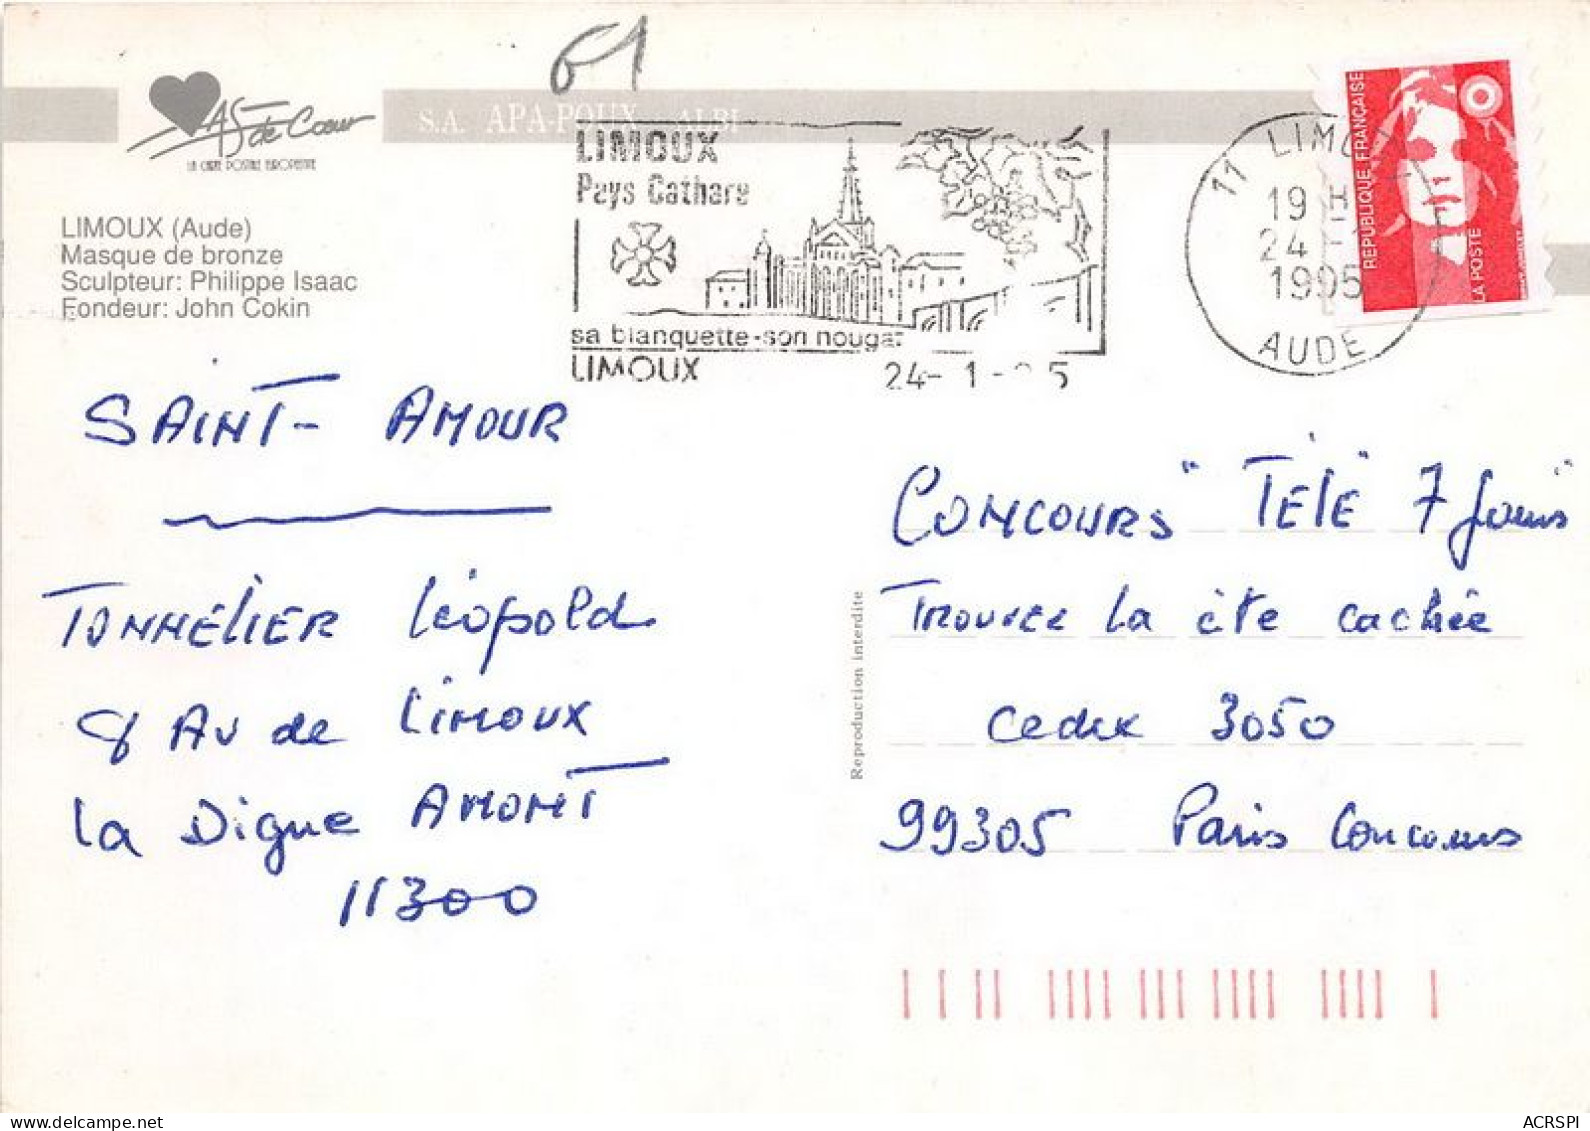 61
AS de Cœur
LA CARTE POSTALE EUROPEENNE
S.A. APA-POUX ALBI
LIMOUX (Aude)
Masque de bronze
Sculpteur: Philippe Isaac
Fondeur: John Cokin
LIMOUX
Pays Cathare
sa blanquette-son nougat
LIMOUX 24-1-95
11 LIMOUX
19 H
24
1995
AUDE
REPUBLIQUE FRANÇAISE
LA POSTE
SAINT-AMOUR
TONNÉLIER Léopold
8 AV de LIMOUX
la Digue AMONT
11300
CONCOURS "TÉLÉ 7 Jours"
Trouvez la cité cachée
Cedex 3050
99305 Paris Concours
Reproduction interdite
ACRSPI